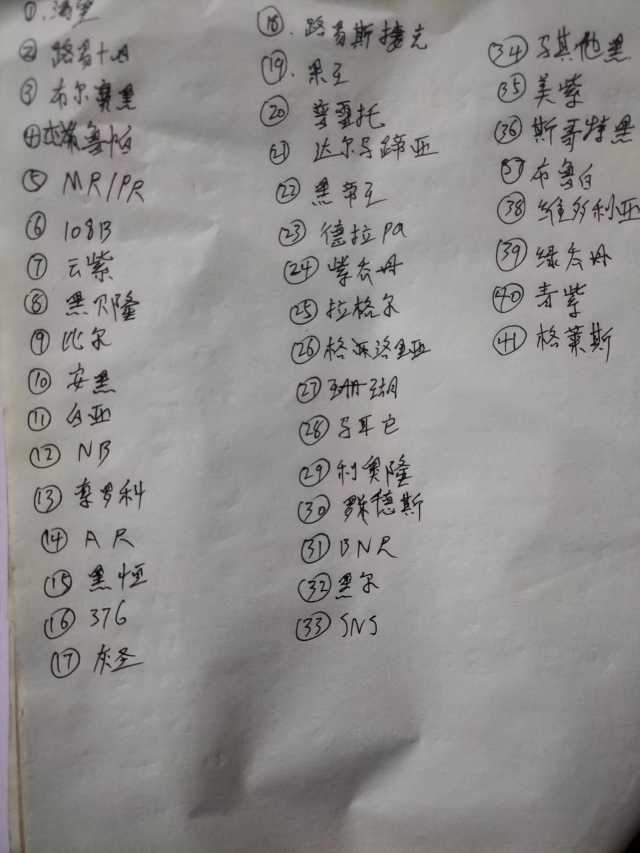 ① 渴望
② 路易十四
③ 布尔赛黑
④ 鲁帕
⑤ MR/PR
⑥ 108B
⑦ 云紫
⑧ 黑贝隆
⑨ 比尔
⑩ 安黑
⑪ 白亚
⑫ NB
⑬ 李罗科
⑭ AR
⑮ 黑恒
⑯ 376
⑰ 灰圣
⑱ 路易斯捷克
⑲ 果王
⑳ 雪托
㉑ 达尔马蹄亚
㉒ 黑帝王
㉓ 德拉pa
㉔ 紫衣丹
㉕ 拉格尔
㉖ 格派洛里亚
㉗ 珊瑚
㉘ 马耳它
㉙ 利奥隆
㉚ 罗德斯
㉛ BNR
㉜ 黑尔
㉝ SNS
㉞ 马其他黑
㉟ 美紫
㊱ 斯哥特黑
㊲ 布鲁白
㊳ 维多利亚
㊴ 绿衣丹
㊵ 青紫
㊶ 格莱斯